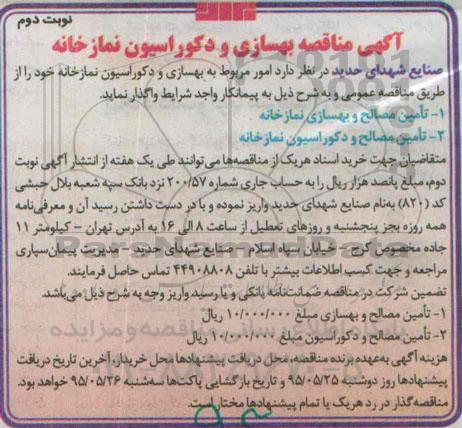 نوبت دوم
آگهی مناقصه بهسازی و دکوراسیون نمازخانه
صنایع شهدای حدید در نظر دارد امور مربوط به بهسازی و دکوراسیون نمازخانه خود را از
طریق مناقصه عمومی و به شرح ذیل به پیمانکار واجد شرایط واگذار نماید.
۱- تأمین مصالح و بهسازی نمازخانه
۲- تأمین مصالح و دکوراسیون نمازخانه
متقاضیان جهت خرید اسناد هریک از مناقصه‌ها می‌توانند طی یک هفته از انتشار آگهی نوبت
دوم، مبلغ پانصد هزار ریال را به حساب جاری شماره ۲۰۰/۵۷ نزد بانک سپه شعبه بلال حبشی
کد (۸۲۰) به‌نام صنایع شهدای حدید واریز نموده و با در دست داشتن رسید آن و معرفی‌نامه
همه روزه بجز پنجشنبه و روزهای تعطیل از ساعت ۸ الی ۱۶ به آدرس تهران - کیلومتر ۱۱
جاده مخصوص کرج - خیابان سپاه اسلام - صنایع شهدای حدید - مدیریت پیمان‌سپاری
مراجعه و جهت کسب اطلاعات بیشتر با تلفن ۴۴۹۰۸۸۰۸ تماس حاصل فرمایند.
تضمین شرکت در مناقصه ضمانت‌نامه بانکی و یا رسید واریز وجه به شرح ذیل می‌باشد.
۱- تأمین مصالح و بهسازی مبلغ ۱۰/۰۰۰/۰۰۰ ریال
۲- تأمین مصالح و دکوراسیون مبلغ ۱۰/۰۰۰/۰۰۰ ریال
هزینه آگهی به‌عهده برنده مناقصه، محل دریافت پیشنهادها محل خریدار، آخرین تاریخ دریافت
پیشنهادها روز دوشنبه ۹۵/۰۵/۲۵ و تاریخ بازگشایی پاکت‌ها سه‌شنبه ۹۵/۰۵/۲۶ خواهد بود.
مناقصه‌گذار در رد هریک یا تمام پیشنهادها مختار است.